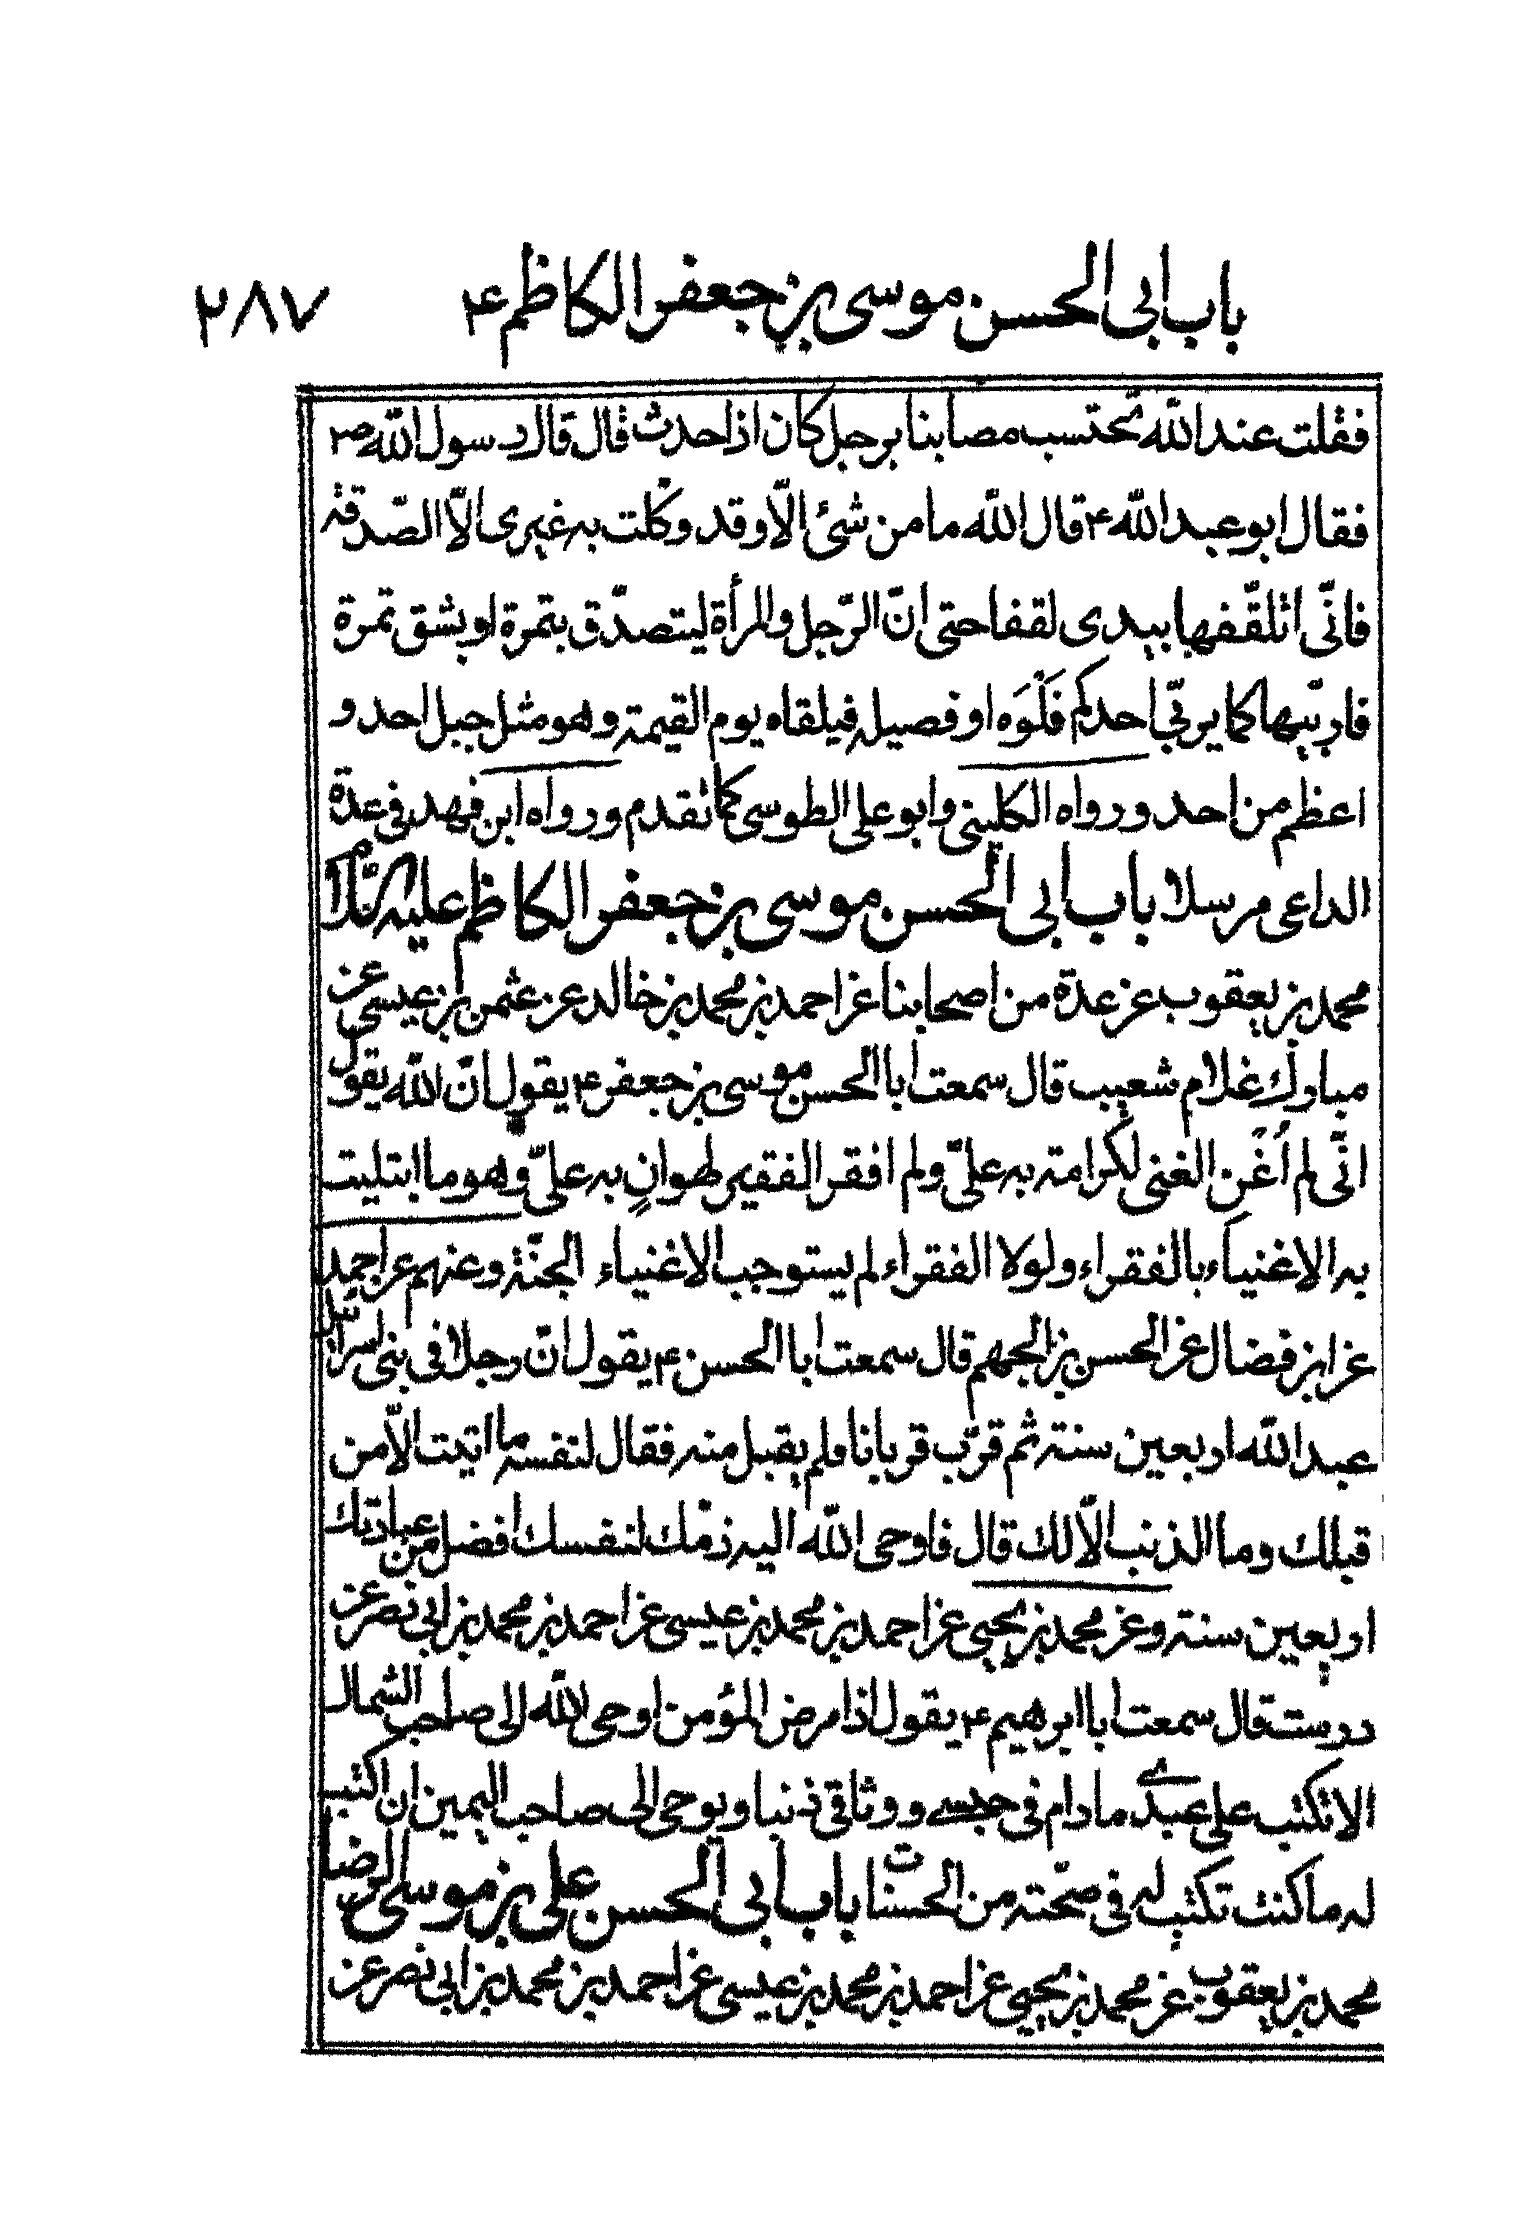 باب ابى الحسن موسى بن جعفر الكاظم ع ٢٨٧
فقلت عند الله نحتسب مصابنا برجل كان اذا حدث قال قال رسول الله ص
فقال ابو عبد الله ع قال الله ما من شئ الّا و قد وكلت به غيرى الّا الصّدقة
فانّى اتلقّفها بيدى لقفا حتى انّ الرّجل والمرأة ليتصدّق بتمرة او بشق تمرة
فاربّيها كما يربّى احدكم فَلُوَه او فصيله فيلقاه يوم القيمة وهو مثل جبل احد و
اعظم من احد و رواه الكلينى و ابو على الطوسى كما تقدم و رواه ابن فهد فى عدة
الداعى مرسلا باب ابى الحسن موسى بن جعفر الكاظم عليه السلام
محمد بن يعقوب عن عدة من اصحابنا عن احمد بن محمد بن خالد عن عثمن بن عيسى عن
مبارك غلام شعيب قال سمعت ابا الحسن موسى بن جعفر ع يقول انّ الله يقول
انّى لم اُغن الغنى لكرامة به علىّ ولم افقر الفقير لهوانٍ به علىّ وهو ما ابتليت
به الاغنياء بالفقراء ولولا الفقراء لم يستوجب الاغنياء الجنّة وعنهم عن احمد
عن ابن فضال عن الحسن بن الجهم قال سمعت ابا الحسن ع يقول انّ رجلا فى بنى اسرائيل
عبد الله اربعين سنة ثم قرّب قربانا فلم يقبل منه فقال لنفسه ما اتيت الّا من
قبلك وما الذنب الّا لك قال فاوحى الله اليه ذمّك لنفسك افضل من عبادتك
اربعين سنة و عن محمد بن يحيى عن احمد بن محمد بن عيسى عن احمد بن محمد بن ابى نصر عن
درست قال سمعت ابا ابرهيم ع يقول اذا مرض المؤمن اوحى الله الى صاحب الشمال
الا تكتب على عبدى مادام فى حبسى و وثاقى ذنبا و يوحى الى صاحب اليمين ان اكتب
له ما كنت تكتب له فى صحّته من الحسنات باب ابى الحسن على بن موسى الرضا
محمد بن يعقوب عن محمد بن يحيى عن احمد بن محمد بن عيسى عن احمد بن محمد بن ابى نصر عن